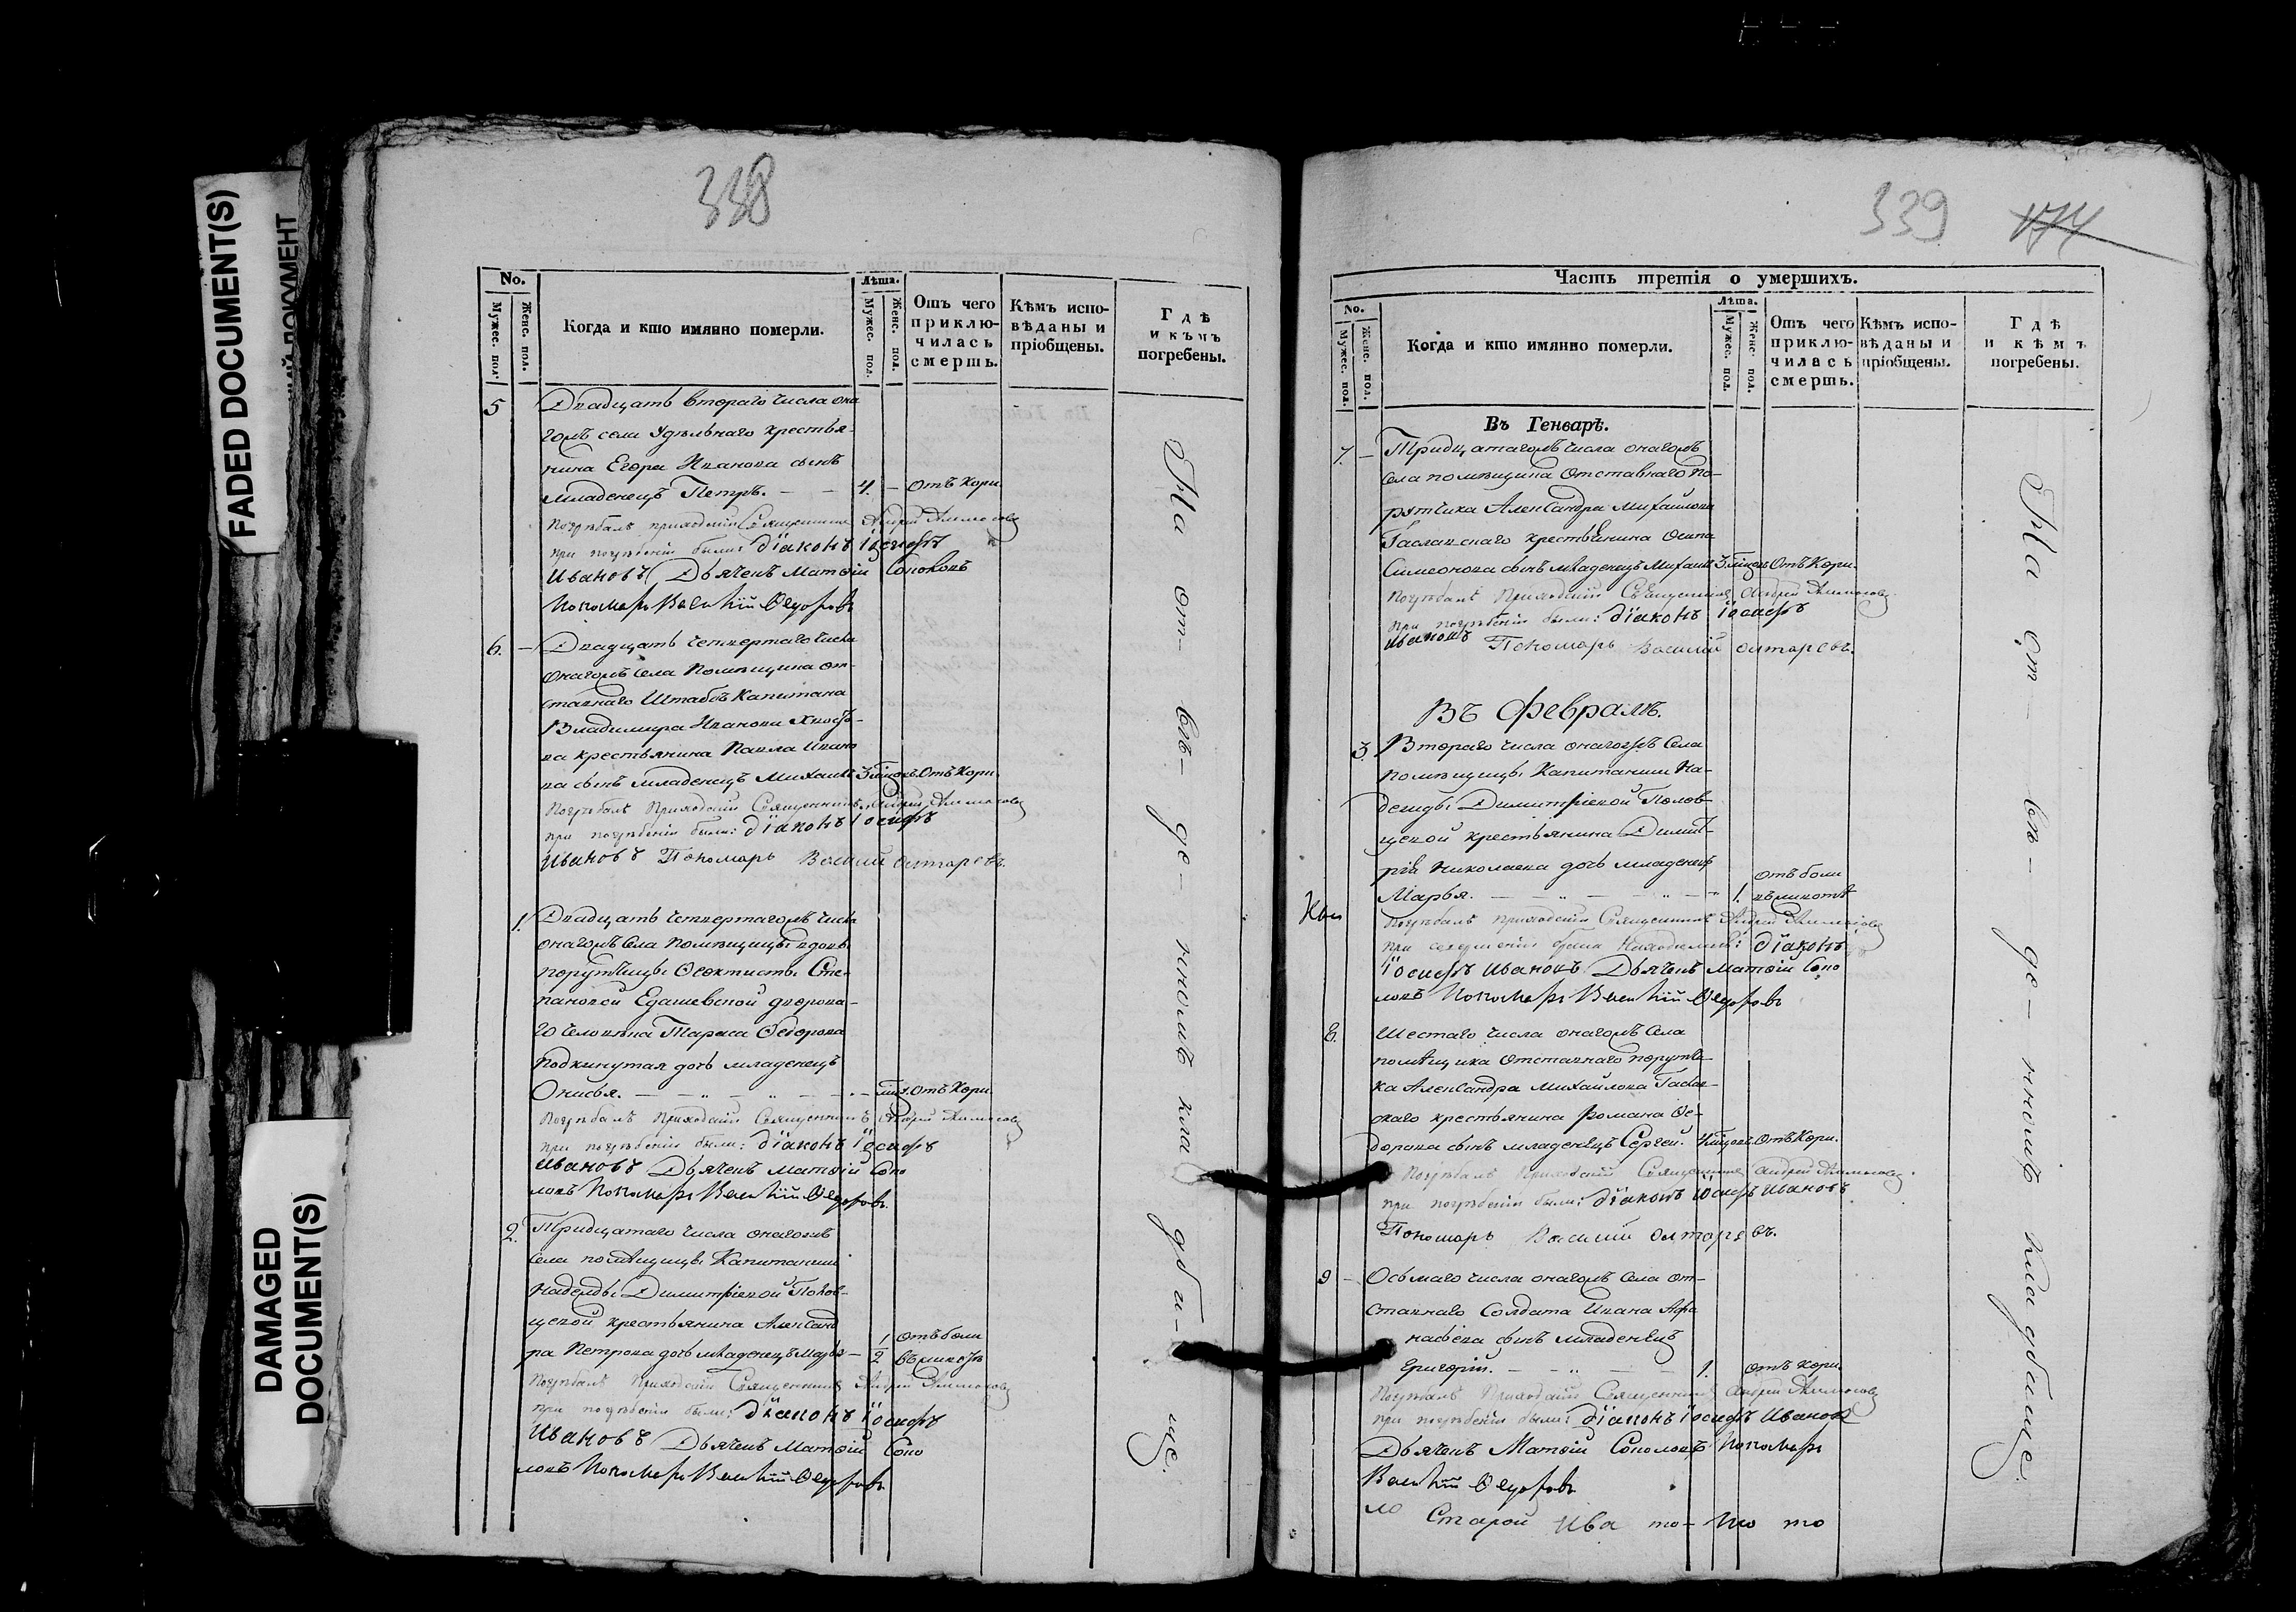 FADED DOCUMENT(S)
DAMAGED
DOCUMENT(S)
338
No.
Мужес. пол.
Женс. пол.
Когда и кто имянно померли.
Лѣта.
Мужес. пол.
Женс. пол.
Отъ чего
приклю-
чилась
смерть.
Кѣмъ испо-
вѣданы и
пріобщены.
Гдѣ
и кѣмъ
погребены.
5
Двадцать втораго числа она
гожъ села Удѣльнаго крестья-
нина Егора Иванова сынъ
младенецъ Петръ. — — 4. — отъ Кори.
Погребалъ приходскій Священникъ Андрей
при погребеніи были: діаконъ Іосифъ
Ивановъ Дьячекъ Матѳій Соколовъ
Пономарь Василій Ѳедоровъ
6. —
Двадцать четвертаго числа
онагожъ села Помѣщика от-
ставнаго Штабсъ Капитана
Владимира Иванова
ва крестьянина Павла Ивано
ва сынъ младенецъ Михаилъ 3 Отъ Кори.
Погребалъ Приходскій Священникъ Андрей
при погребеніи были: діаконъ Іосифъ
Ивановъ Пономарь Василій
1.
Двадцать четвертагожъ числа
онагожъ села Помѣщицы вдовы
порутчицы Ѳеоктисты Сте-
пановой Едашевской дворова-
го человѣка Тараса Ѳедорова
подкинутая дочь младенецъ
Онисья. — — — — Отъ Кори.
Погребалъ Приходскій Священникъ Андрей
при погребеніи были: діаконъ Іосифъ
Ивановъ Дьячекъ Матѳій Соко
ловъ Пономарь Василій Ѳедоровъ
2.
Тридцатаго числа онагожъ
села помѣщицы Капитанши
Надежды Димитріевой Полов-
цевой крестьянина Александ
ра Петрова дочь младенецъ Марья — 1/2 отъ боли въ животѣ
Погребалъ Приходскій Священникъ Андрей
при погребеніи были: діаконъ Іосифъ
Ивановъ Дьячекъ Матѳій Соко
ловъ Пономарь Василій Ѳедоровъ
На от- вѣ- де- нномъ кла дби- ще.
339 174
Часть третія о умершихъ.
No.
Мужес. пол.
Женс. пол.
Когда и кто имянно померли.
Лѣта.
Мужес. пол.
Женс. пол.
Отъ чего
приклю-
чилась
смерть.
Кѣмъ испо-
вѣданы и
пріобщены.
Гдѣ
и кѣмъ
погребены.
Въ Генварѣ.
7. —
Тридцатагожъ числа онагожъ
села помѣщика Отставнаго по-
рутчика Александра Михайлова
крестьянина Осипа
Симеонова сынъ младенецъ Михаилъ 3 Отъ Кори.
Погребалъ Приходскій Священникъ Андрей
при погребеніи были: діаконъ Іосифъ
Ивановъ Пономарь Василій
Въ Февралѣ.
3.
Втораго числа онагожъ села
помѣщицы Капитанши На-
дежды Димитріевой Полов-
цевой крестьянина Димит-
рія Николаева дочь младенецъ
Марья. — — — 1. отъ боли въ животѣ
Погребалъ приходскій Священникъ Андрей
при были діаконъ
Іосифъ Ивановъ Дьячекъ Матѳій Соко
ловъ Пономарь Василій Ѳедоровъ
8.
Шестаго числа онагожъ села
помѣщика Отставнаго порутчи-
ка Александра Михайлова
скаго крестьянина Романа Ѳе-
дорова сынъ младенецъ Сергей. 4 Отъ Кори.
Погребалъ Приходскій Священникъ Андрей
при погребеніи были: діаконъ Іосифъ Ивановъ
Пономарь Василій
9 —
Осьмаго числа онагожъ села от-
ставнаго Солдата Ивана Афа
насьева сынъ младенецъ
Григорій. — — — 1. отъ Кори.
Погребалъ Приходскій Священникъ Андрей
при погребеніи были: діаконъ Іосифъ Ивановъ
Дьячекъ Матѳій Соколовъ Пономарь
Василій Ѳедоровъ
Старой Ива то- то
На от- вѣ- де- нномъ кладбище.